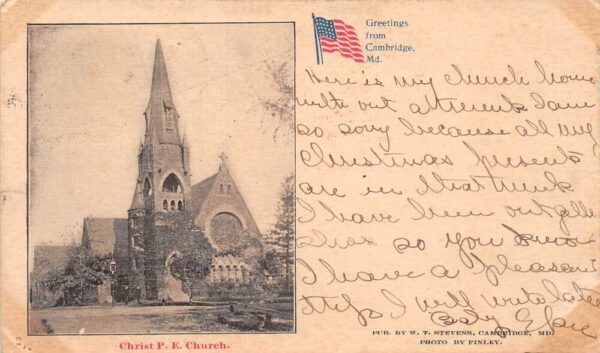 Greetings
from
Cambridge,
Md.
Here is my church home
with out a trunk I am
so sorry because all my
Christmas presents
are in that trunk
I have been out
so you know
I have a pleasant
I will write later
Christ P. E. Church.
PUB. BY W. T. STEVENS, CAMBRIDGE, MD.
PHOTO BY FINLEY.